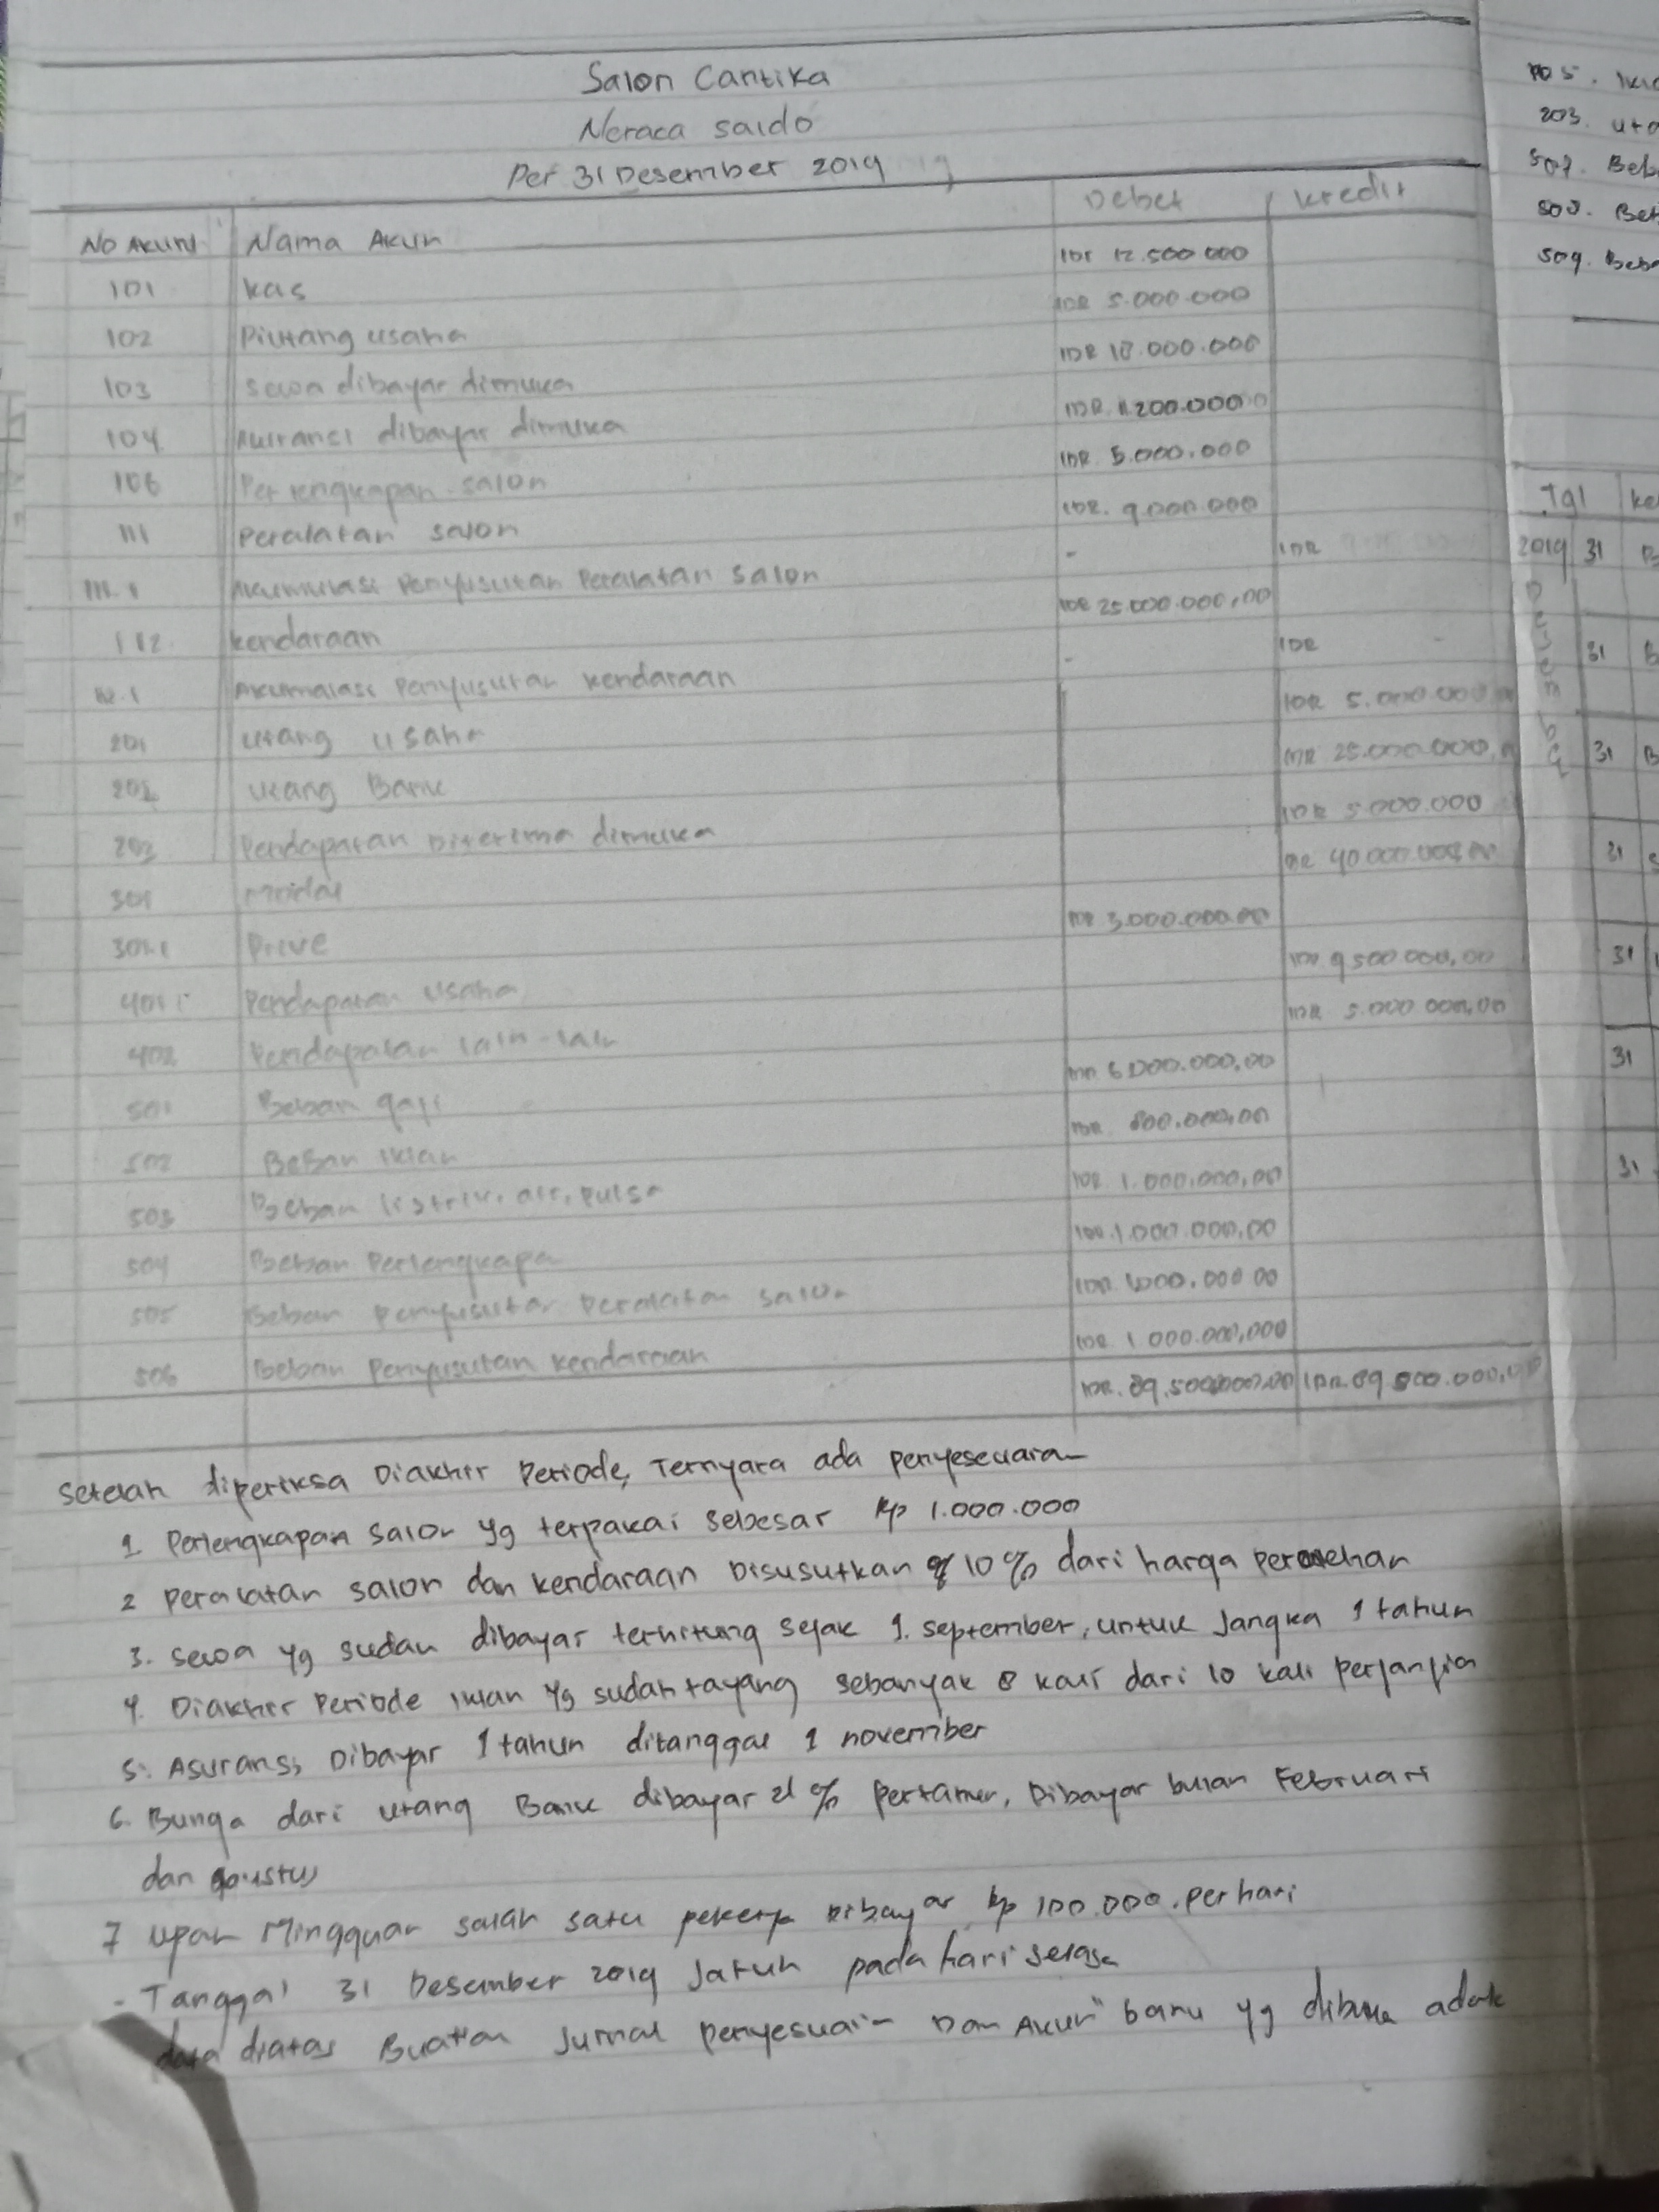 Salon Cantika
Neraca saldo
Per 31 Desember 2019
No Akun Nama Akun Debet Kredit
101 kas IDR 12.500.000
102 Piutang usaha IDR 5.000.000
103 sewa dibayar dimuka IDR 18.000.000
104 Asuransi dibayar dimuka IDR 1.200.000
106 Perlengkapan salon IDR 5.000.000
111 Peralatan salon IDR. 9.000.000
111.1 Akumulasi Penyusutan Peralatan Salon - IDR
112 kendaraan IDR 25.000.000,00
112.1 Akumulasi Penyusutan kendaraan - IDR -
201 utang usaha IDR 5.000.000
202 utang Bank IDR 25.000.000,
203 Pendapatan Diterima dimuka IDR 5.000.000
301 Modal IDR 40.000.000
301.1 Prive IDR 3.000.000.00
401 Pendapatan Usaha IDR 9.500.000,00
402 Pendapatan lain-lain IDR 5.000.000,00
501 Beban gaji 6.000.000,00
502 Beban Iklan IDR 800.000,00
503 Beban listrik, air, pulsa IDR 1.000.000,00
504 Beban Perlengkapa IDR.1.000.000,00
505 Beban Penyusutan Peralatan salon IDR 1.000.000 00
506 Beban Penyusutan kendaraan IDR 1.000.000,000
IDR. 89.500.000,00 IDR.89 500.000,00
Setelah diperiksa Diakhir Periode, Ternyata ada penyesuaian
1. Perlengkapan salon yg terpakai sebesar Rp 1.000.000
2 Peralatan salon dan kendaraan Disusutkan 10% dari harga perolehan
3. Sewa yg sudah dibayar terhitung sejak 1. september, untuk jangka 1 tahun
4. Diakhir Periode iklan yg sudah tayang sebanyak 8 kali dari 10 kali perjanjian
5. Asuransi Dibayar 1 tahun ditanggal 1 november
6. Bunga dari utang Bank dibayar % pertahun, Dibayar bulan Februari
dan agustus
7 Upah Mingguan salah satu pekerja dibayar Rp 100.000. perhari
- Tanggal 31 Desember 2019 Jatuh pada hari selasa
data diatas Buatlah Jurnal penyesuain Dan Akun" baru yg dibuka
105.
203. uta
507. Beb
508. Beb
509. Beba
Tgl ke
2019 31 B
Desember
31 B
31 B
31 S
31
31
31